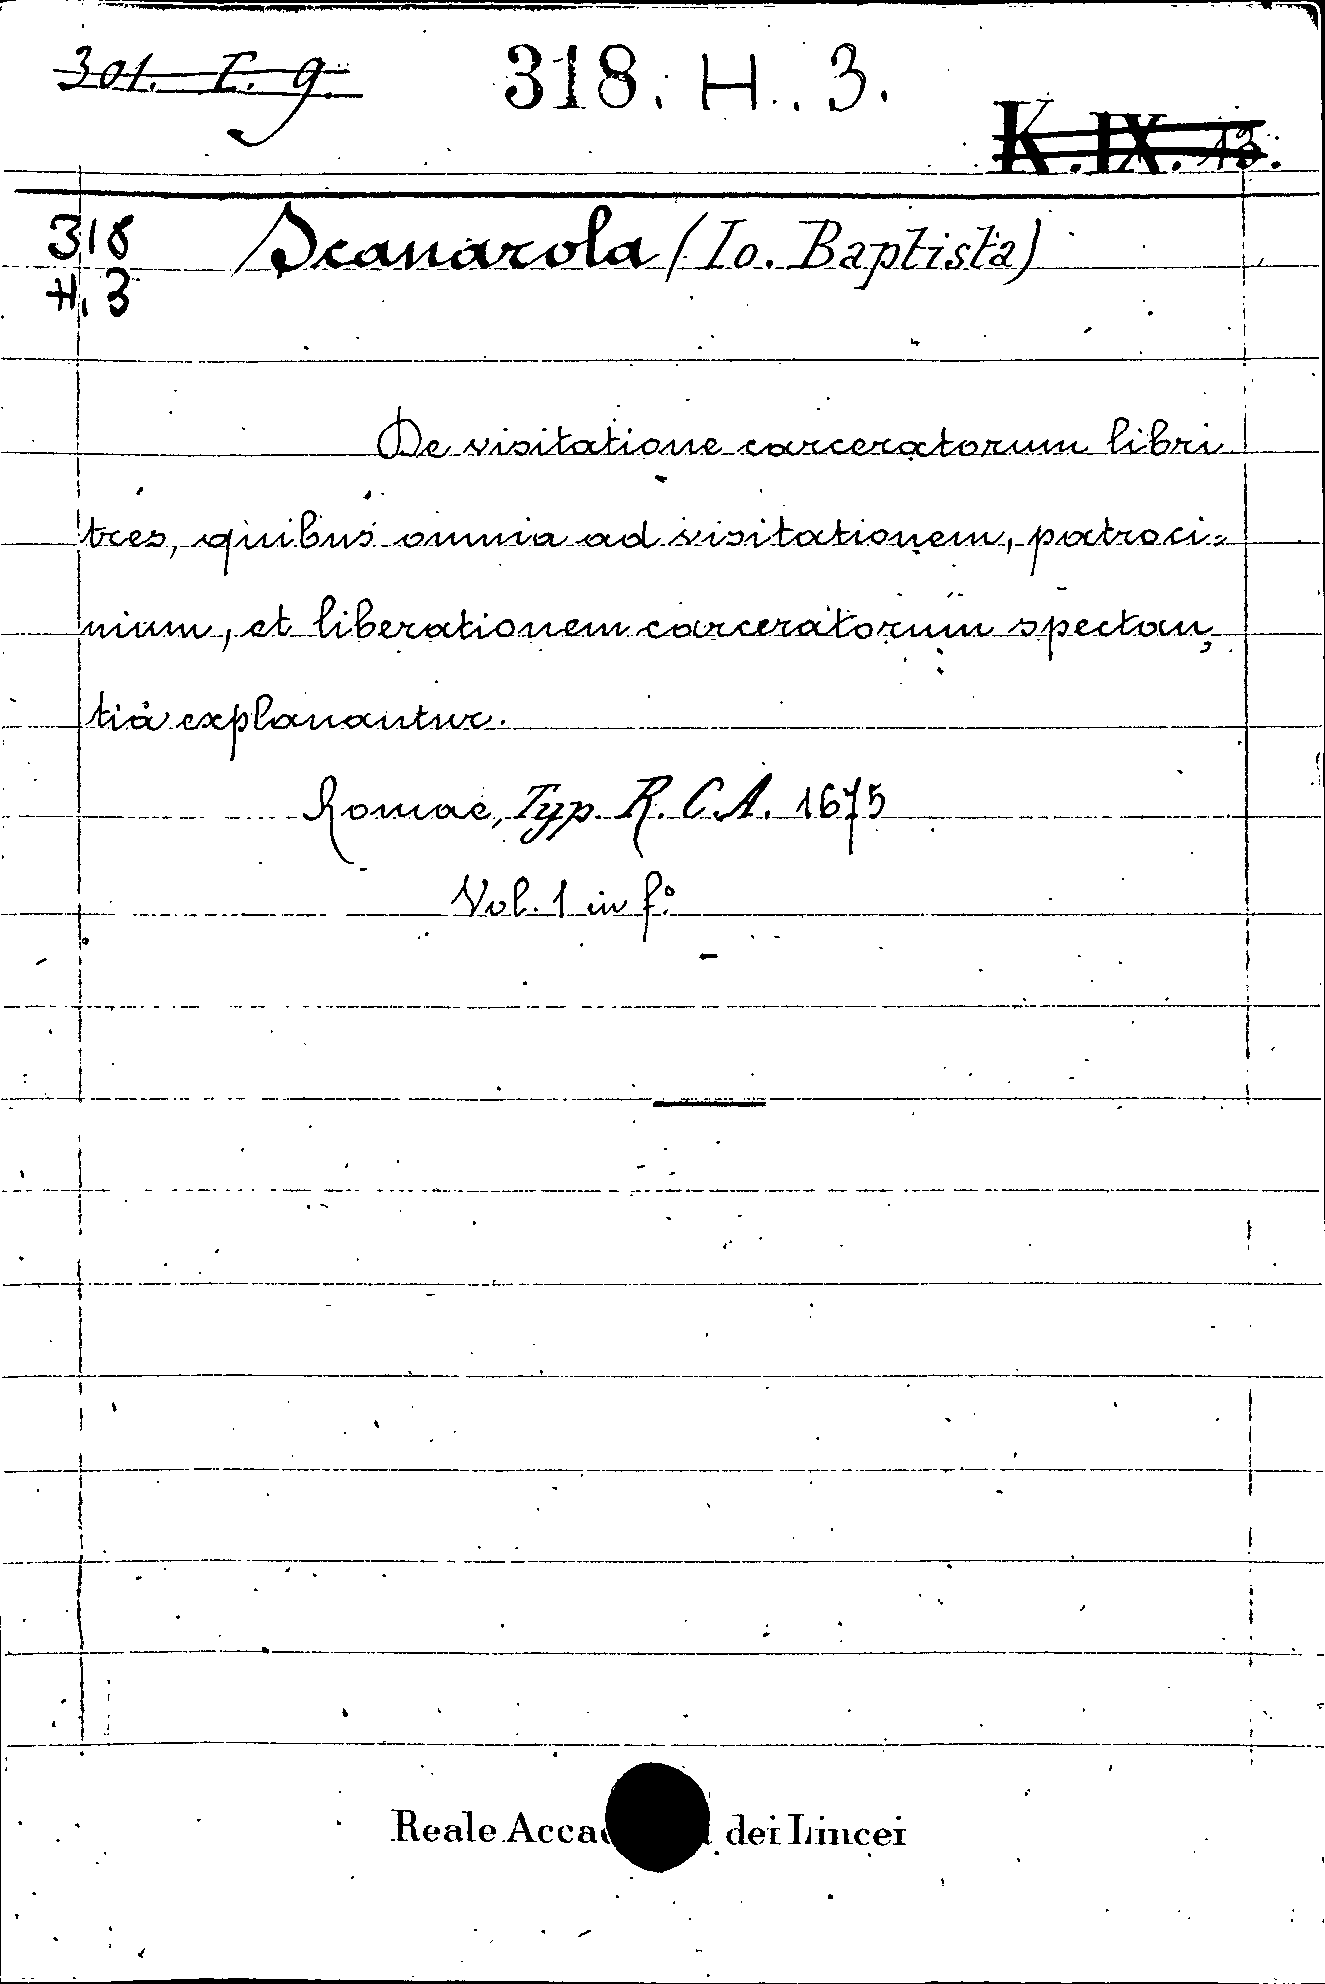 301. E. 9. 318. H. 3.
K. IX. 13.
318 Scanarola (Io. Baptista)
H. 3
De visitatione carceratorum libri
tres, quibus omnia ad visitationem, patroci=
nium, et liberationem carceratorum spectan,
tia explanantur.
Romae, Typ. R. C. A. 1675
Vol. 1 in fº.
Reale Acca dei Lincei